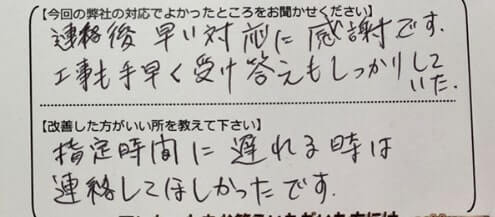 【今回の弊社の対応でよかったところをお聞かせください】
連絡後早い対応に感謝です.
工事も手早く受け答えもしっかりして
いた.
【改善した方がいい所を教えて下さい】
指定時間に遅れる時は
連絡してほしかったです.